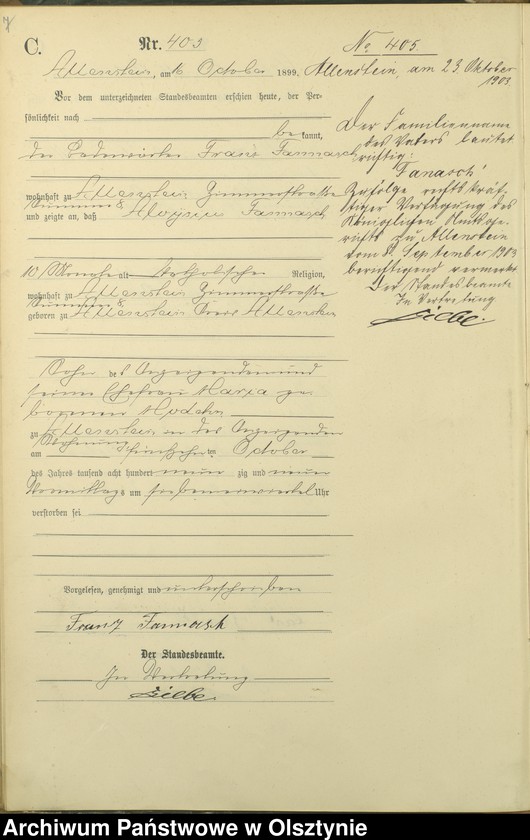 C.
Nr. 403
Allenstein, am 16 October 1899.
Vor dem unterzeichneten Standesbeamten erschien heute, der Per-
sönlichkeit nach
bekannt,
der Franz
wohnhaft zu Allenstein Zimmerstraße
und zeigte an, daß Aloysius
10 Monate alt katholischer Religion,
wohnhaft zu Allenstein Zimmerstraße
geboren zu Allenstein Kreis Allenstein
Sohn des Anzeigenden und
seiner Ehefrau Maria ge-
borenen
zu Allenstein in des Anzeigenden
Wohnung
am October
des Jahres tausend acht hundert neun zig und neun
Vormittags um sieben Uhr
verstorben sei
Vorgelesen, genehmigt und unterschrieben
Franz
Der Standesbeamte.
In Vertretung
No 405
Allenstein, am 23 Oktober
1903
Der Familienname
des Vaters lautet
richtig:
"Tanasch"
Zufolge rechtskräf-
tiger Verfügung des
Königlichen Amtsge-
richts zu Allenstein
vom September 1903
berichtigend vermerkt
Der Standesbeamte
In Vertretung
Archiwum Państwowe w Olsztynie